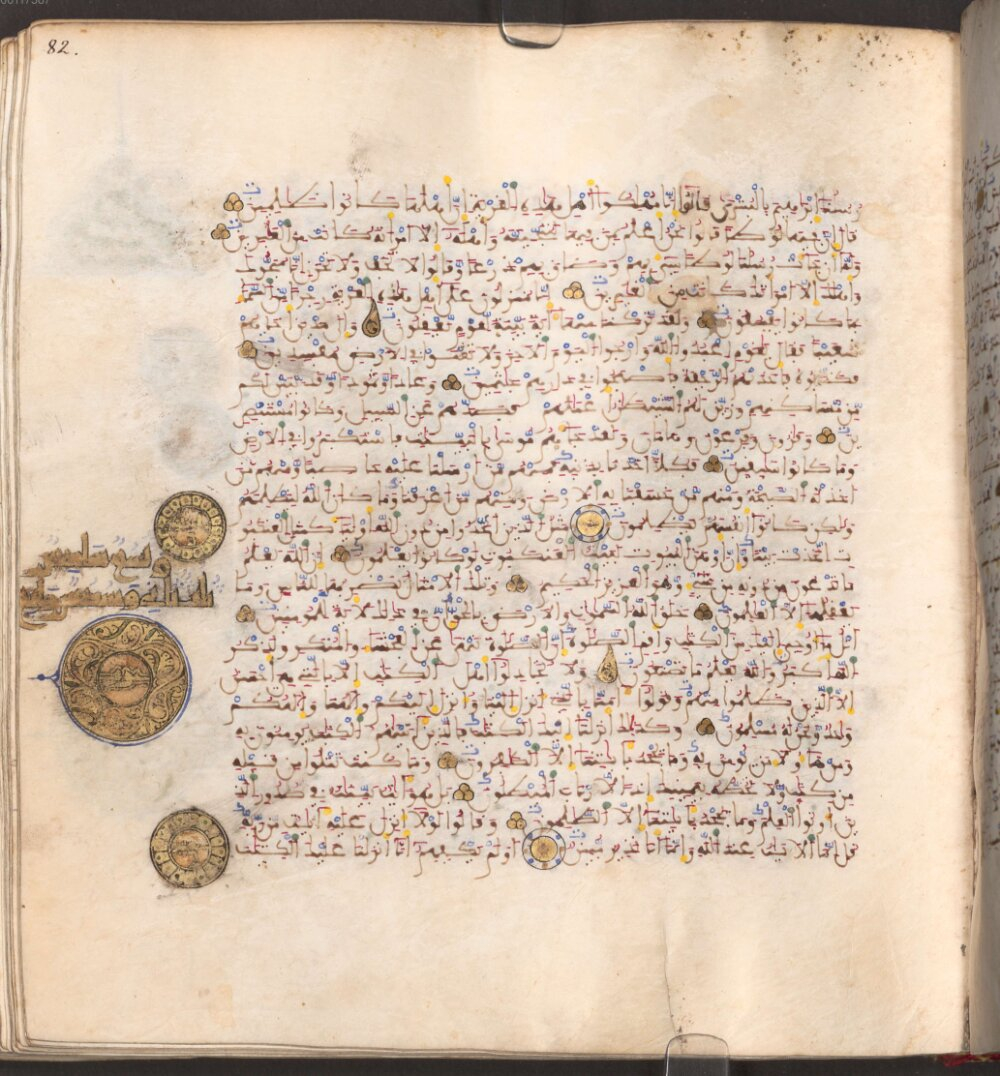 82.
رسلنا ابرهيم بالبشرى قالوا انا مهلكوا اهل هذه القرية ان اهلها كانوا ظلمين
قال ان فيها لوطا قالوا نحن اعلم بمن فيها لننجينه واهله الا امراته كانت من الغبرين
ولما ان جات رسلنا لوطا سيء بهم وضاق بهم ذرعا وقالوا لا تخف ولا تحزن انا منجوك
واهلك الا امراتك كانت من الغبرين انا منزلون على اهل هذه القرية رجزا من السما
بما كانوا يفسقون ولقد تركنا منها اية بينة لقوم يعقلون والى مدين اخاهم
شعيبا فقال يقوم اعبدوا الله وارجوا اليوم الاخر ولا تعثوا في الارض مفسدين
فكذبوه فاخذتهم الرجفة فاصبحوا في دارهم جثمين وعادا وثمودا وقد تبين لكم
من مسكنهم وزين لهم الشيطن اعملهم فصدهم عن السبيل وكانوا مستبصر
ين وقرون وفرعون وهمن ولقد جاهم موسى بالبينت فاستكبروا في الارض
وما كانوا سبقين فكلا اخذنا بذنبه فمنهم من ارسلنا عليه حاصبا ومنهم من
اخذته الصيحة ومنهم من خسفنا به الارض ومنهم من اغرقنا وما كان الله ليظلمهم
ولكن كانوا انفسهم يظلمون مثل الذين اتخذوا من دون الله اوليا كمثل العنكبو
ت اتخذت بيتا وان اوهن البيوت لبيت العنكبوت لو كانوا يعلمون ان الله يعلم
ما تدعون من دونه من شيء وهو العزيز الحكيم وتلك الامثل نضربها للناس وما
يعقلها الا العلمون خلق الله السموت والارض بالحق ان في ذلك لاية للمومنين
اتل ما اوحي اليك من الكتب واقم الصلوة ان الصلوة تنهى عن الفحشا والمنكر ولذكر
الله اكبر والله يعلم ما تصنعون ولا تجدلوا اهل الكتب الا بالتي هي احسن
الا الذين ظلموا منهم وقولوا امنا بالذي انزل الينا وانزل اليكم والهنا والهكم
وحد ونحن له مسلمون وكذلك انزلنا اليك الكتب فالذين اتينهم الكتب يومنون به
ومن هولا من يومن به وما يجحد بايتنا الا الكفرون وما كنت تتلوا من قبله
من كتب ولا تخطه بيمينك اذا لارتاب المبطلون بل هو ايت بينت في صدور الذ
ين اوتوا العلم وما يجحد بايتنا الا الظلمون وقالوا لولا انزل عليه ايت من ربه
قل انما الايت عند الله وانما انا نذير مبين اولم يكفهم انا انزلنا عليك الكتب